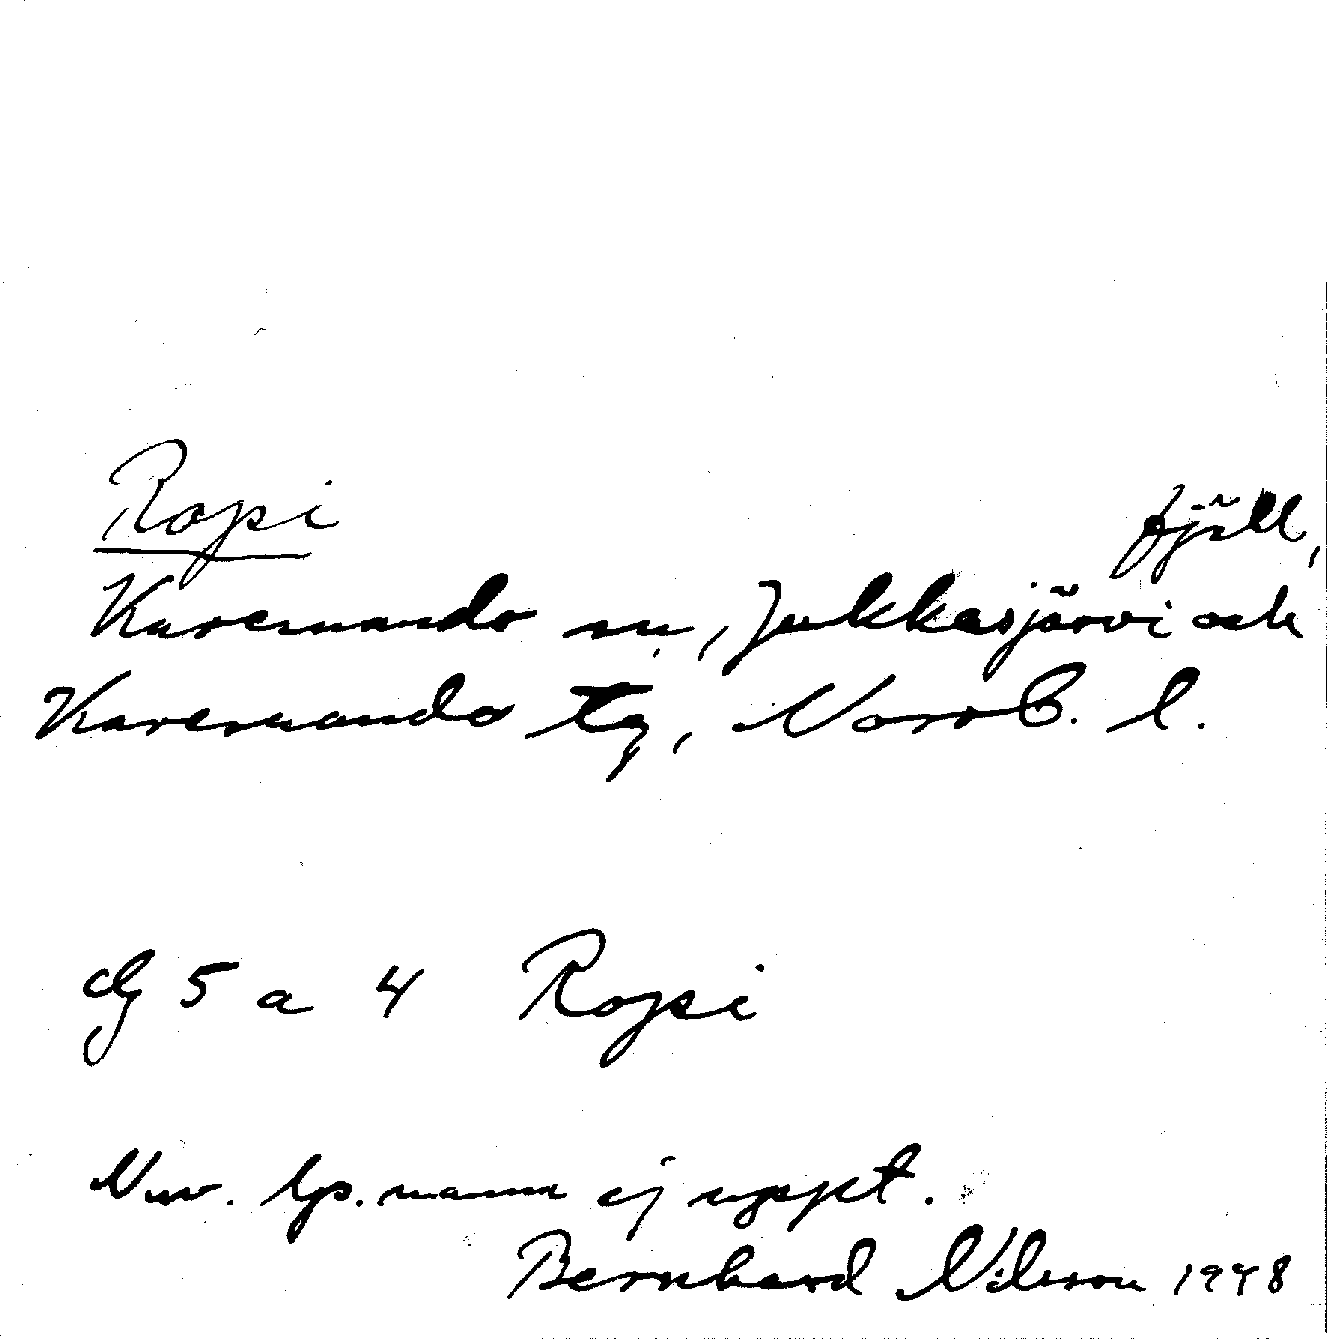 Ropi
fjäll,
Karesuando sn, Jukkasjärvi och
Karesuando tg, Norrb. l.
dg 5 a 4 Ropi
Nuv. lp. namn ej uppt.
Bernhard Nilsson 1948